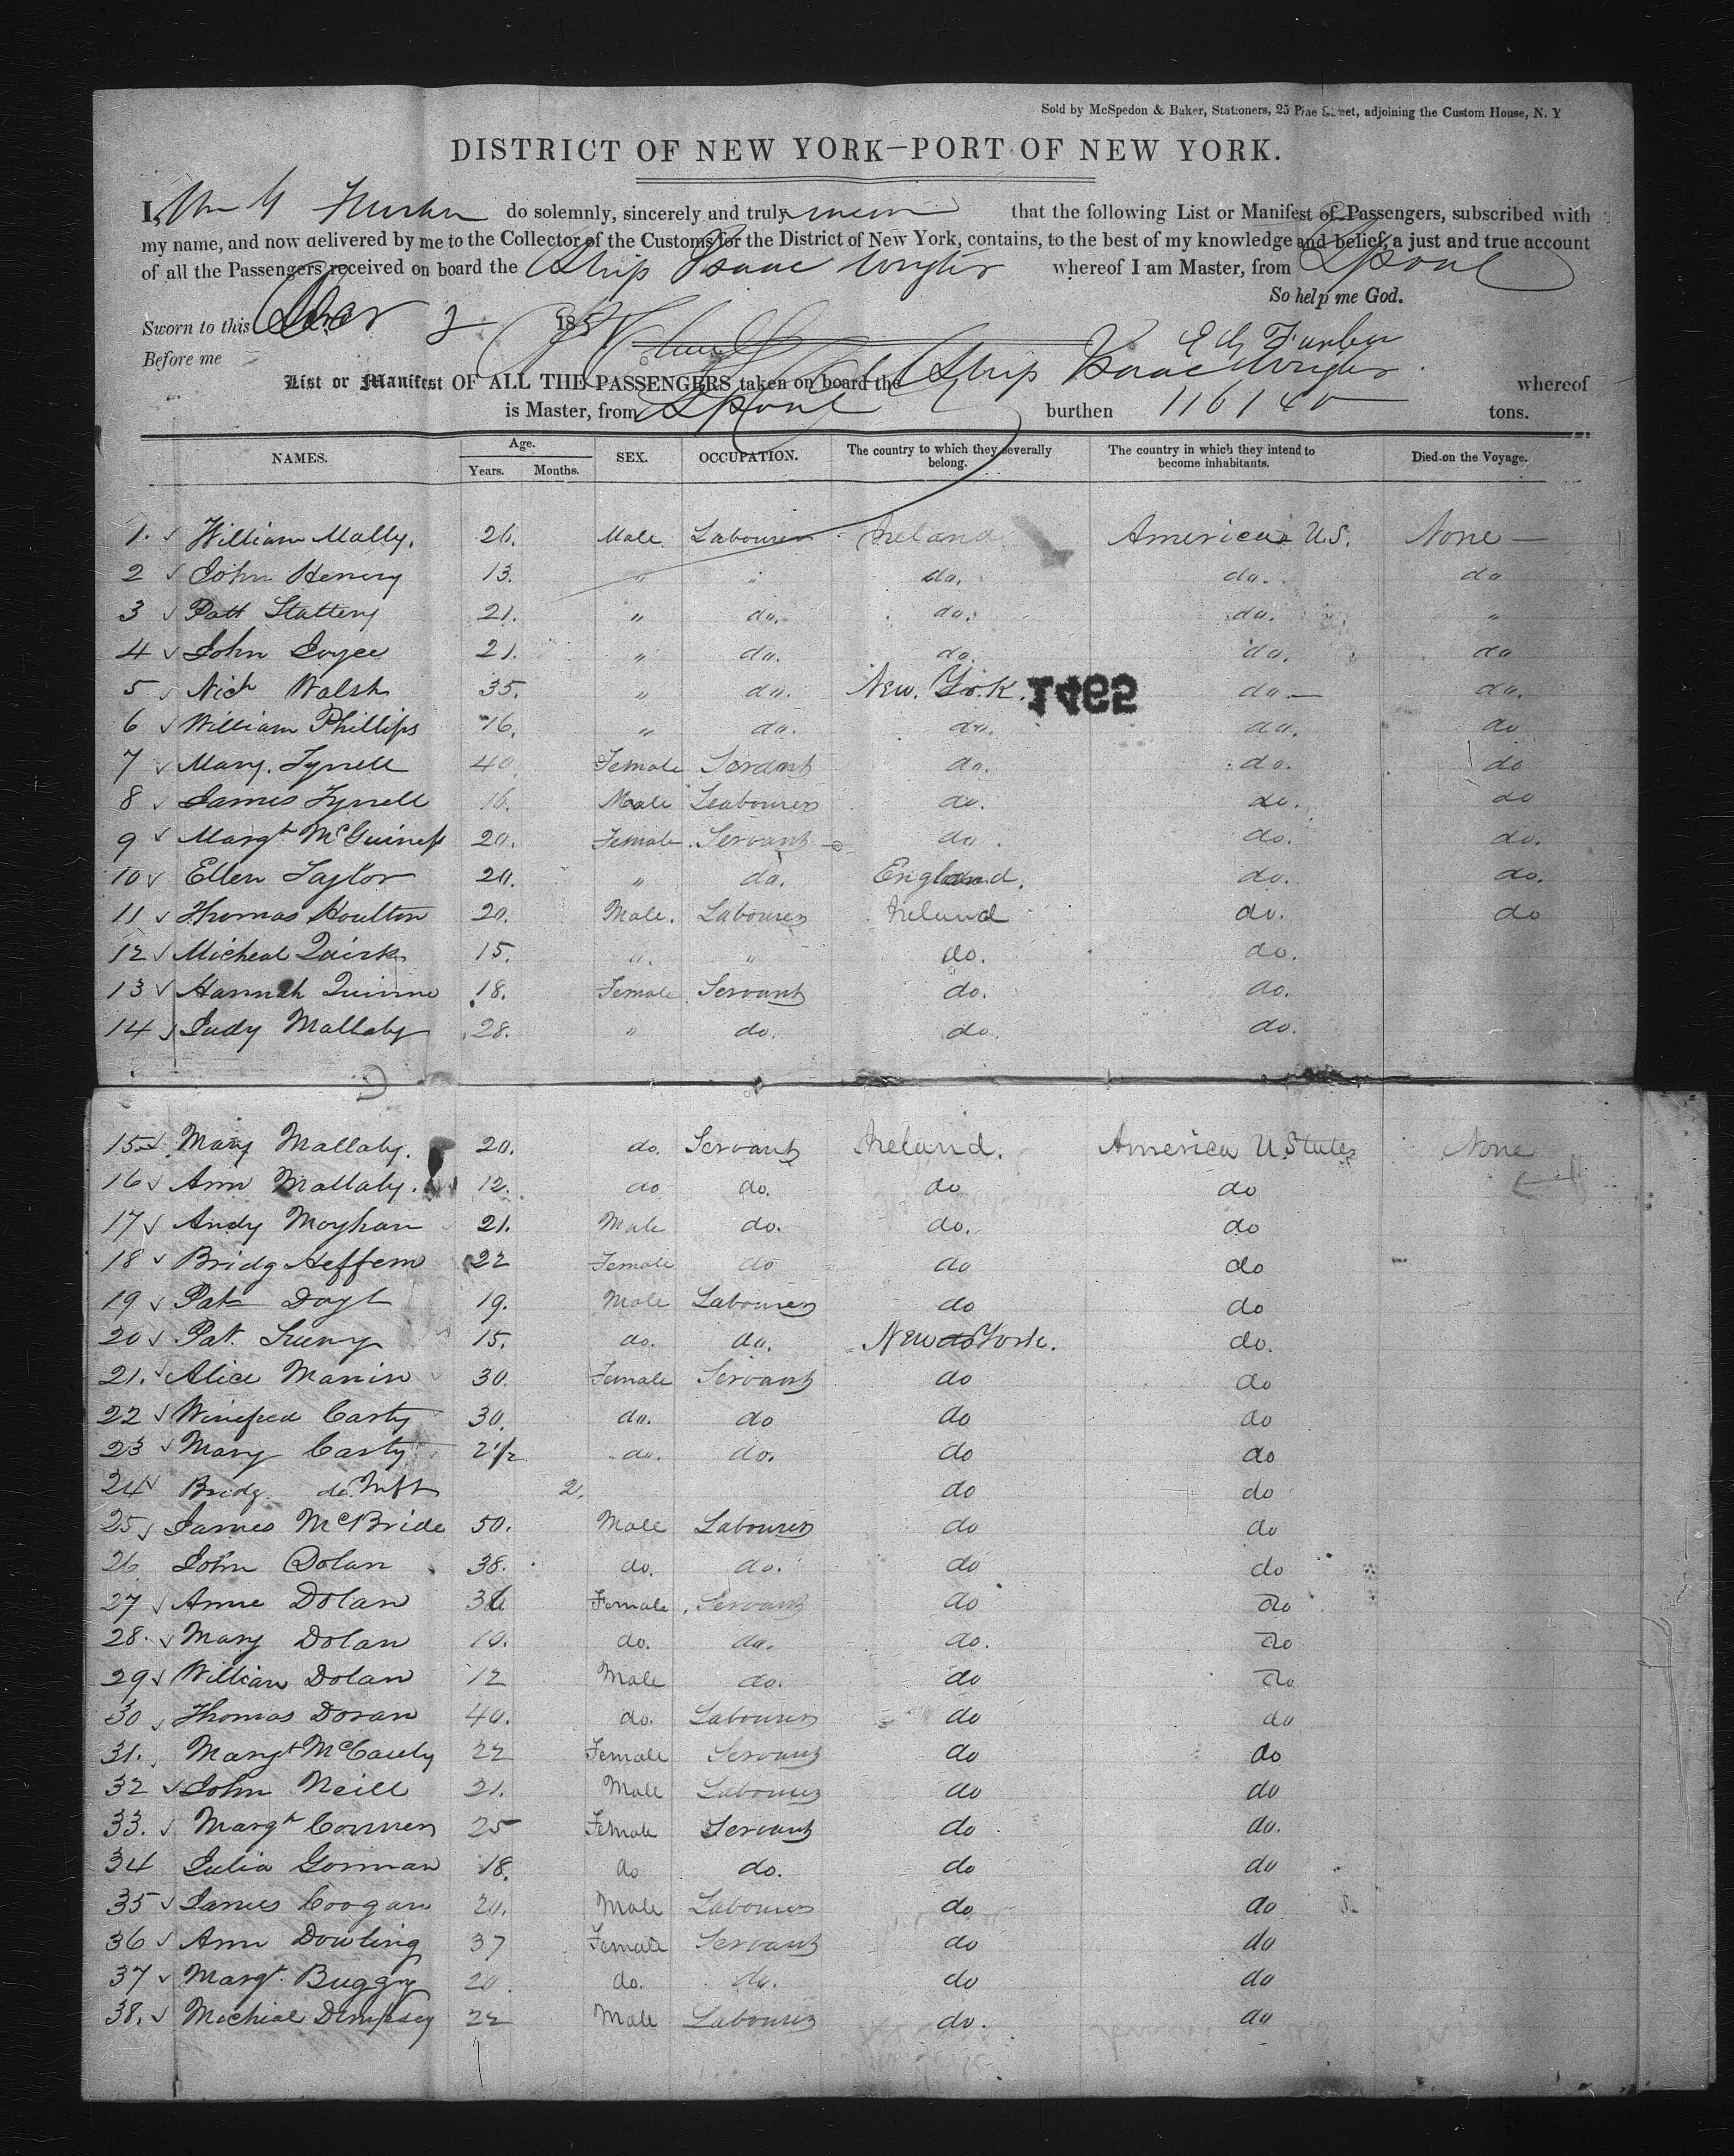 Sold by McSpedon & Baker, Stationers, 25 Pine Street, adjoining the Custom House, N. Y
DISTRICT OF NEW YORK—PORT OF NEW YORK.
I, do solemnly, sincerely and truly swear that the following List or Manifest of Passengers, subscribed with
my name, and now delivered by me to the Collector of the Customs for the District of New York, contains, to the best of my knowledge and belief, a just and true account
of all the Passengers received on board the Ship Isaac Wright whereof I am Master, from Lpool
So help me God.
Sworn to this 2 185
Before me E G Furber
List or Manifest OF ALL THE PASSENGERS taken on board the Ship Isaac Wright whereof
is Master, from Lpool burthen 1161 40 tons.
NAMES. Age. Years. Months. SEX. OCCUPATION. The country to which they severally belong. The country in which they intend to become inhabitants. Died on the Voyage.
1. William Mally. 26. Male Labourer Ireland America U.S. None —
2 John Henery 13. " " do. do. do
3 Patt Slattery 21. " do. do. do. "
4 John Joyce 21. " do. do. do. do
5 Nich Walsh 35. " do. New York. do — do.
1465
6 William Phillips 16. " do. do. do. do
7 Mary. Tyrrell 40 Female Servant do. do. do
8 James Tyrrell 16. Male Leabourer do. do. do
9 Margt McGuiness 20. Female Servant do. do. do.
10 Ellen Taylor 20. " do. England. do. do.
11 Thomas Houlton 20. Male. Labourer Ireland do. do
12 Micheal Quirk 15. " " do. do.
13 Hannah Quinne 18. Female Servant do. do.
14 Judy Mallaby 28. " do. do. do.
15 Mary Mallaby. 20. do. Servant Ireland. America U. States None
16 Ann Mallaby. 12. do do. do do
17 Andy Moyhan 21. Male do. do. do
18 Bridg Heffern 22 Female do do do
19 Pat Doyl 19. Male Labourer do do
20 Pat. 15. do. do. New York. do.
21. Alice Manin 30. Female Servant do do
22 Winefred Carty 30. do. do do do
23 Mary Carty 2 1/2 do. do. do do
24 Bridg. do. Inft 2. do do
25 James McBride 50. Male Labourer do do
26. John Dolan 38. do. do. do do
27 Anne Dolan Female Servant do do
28. Mary Dolan 10. do. do. do. do
29 William Dolan 12 Male do. do do
30 Thomas Doran 40. do. Labourer do do
31. Margt McCauly 22 Female Servant do do
32 John Neill 21. Male Labourer do do
33. Margt Conners 25 Female Servant do do.
34 Julia Gorman 18. do do. do do
35 James Coogan 20. Male Labourer do do
36 Ann Dowling 37 Female Servant do do
37 Margt. Buggy 20 do. do. do do
38. Micheal Dempsey 22 Male Labourer do. do